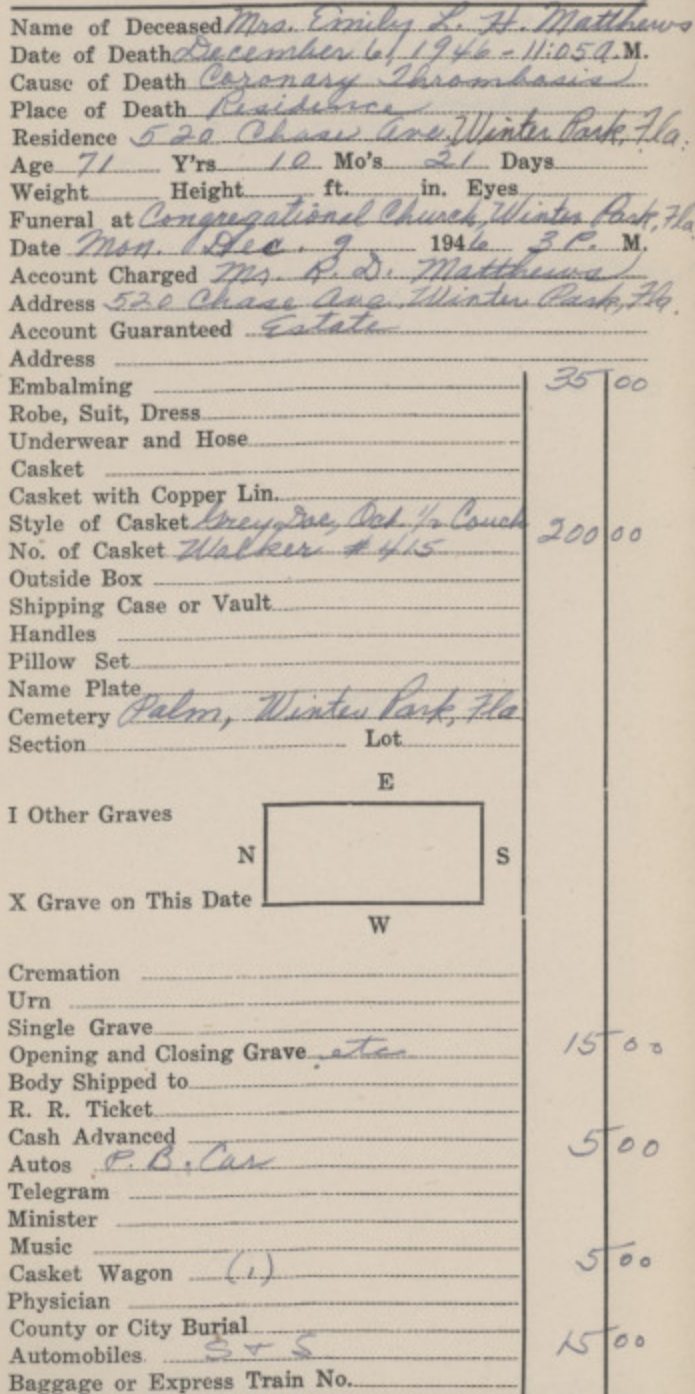 Name of Deceased Mrs. Emily L. H. Matthews
Date of Death December 6, 1946 - 11:05 A. M.
Cause of Death Coronary Thrombosis
Place of Death Residence
Residence 520 Chase Ave, Winter Park, Fla.
Age 71 Y'rs 10 Mo's 21 Days
Weight Height ft. in. Eyes
Funeral at Congregational Church, Winter Park, Fla.
Date Mon. Dec. 9 1946 3 P. M.
Account Charged Mr. R. D. Matthews
Address 520 Chase Ave, Winter Park, Fla.
Account Guaranteed Estate
Address
Embalming 35 00
Robe, Suit, Dress
Underwear and Hose
Casket
Casket with Copper Lin.
Style of Casket Grey Doe, Oct. 1/2 Couch 200 00
No. of Casket Walker #415
Outside Box
Shipping Case or Vault
Handles
Pillow Set
Name Plate
Cemetery Palm, Winter Park, Fla
Section Lot
E
I Other Graves
N S
X Grave on This Date
W
Cremation
Urn
Single Grave
Opening and Closing Grave etc 15 00
Body Shipped to
R. R. Ticket
Cash Advanced
Autos P. B. Car 5 00
Telegram
Minister
Music
Casket Wagon (1) 5 00
Physician
County or City Burial
Automobiles S + S 15 00
Baggage or Express Train No.